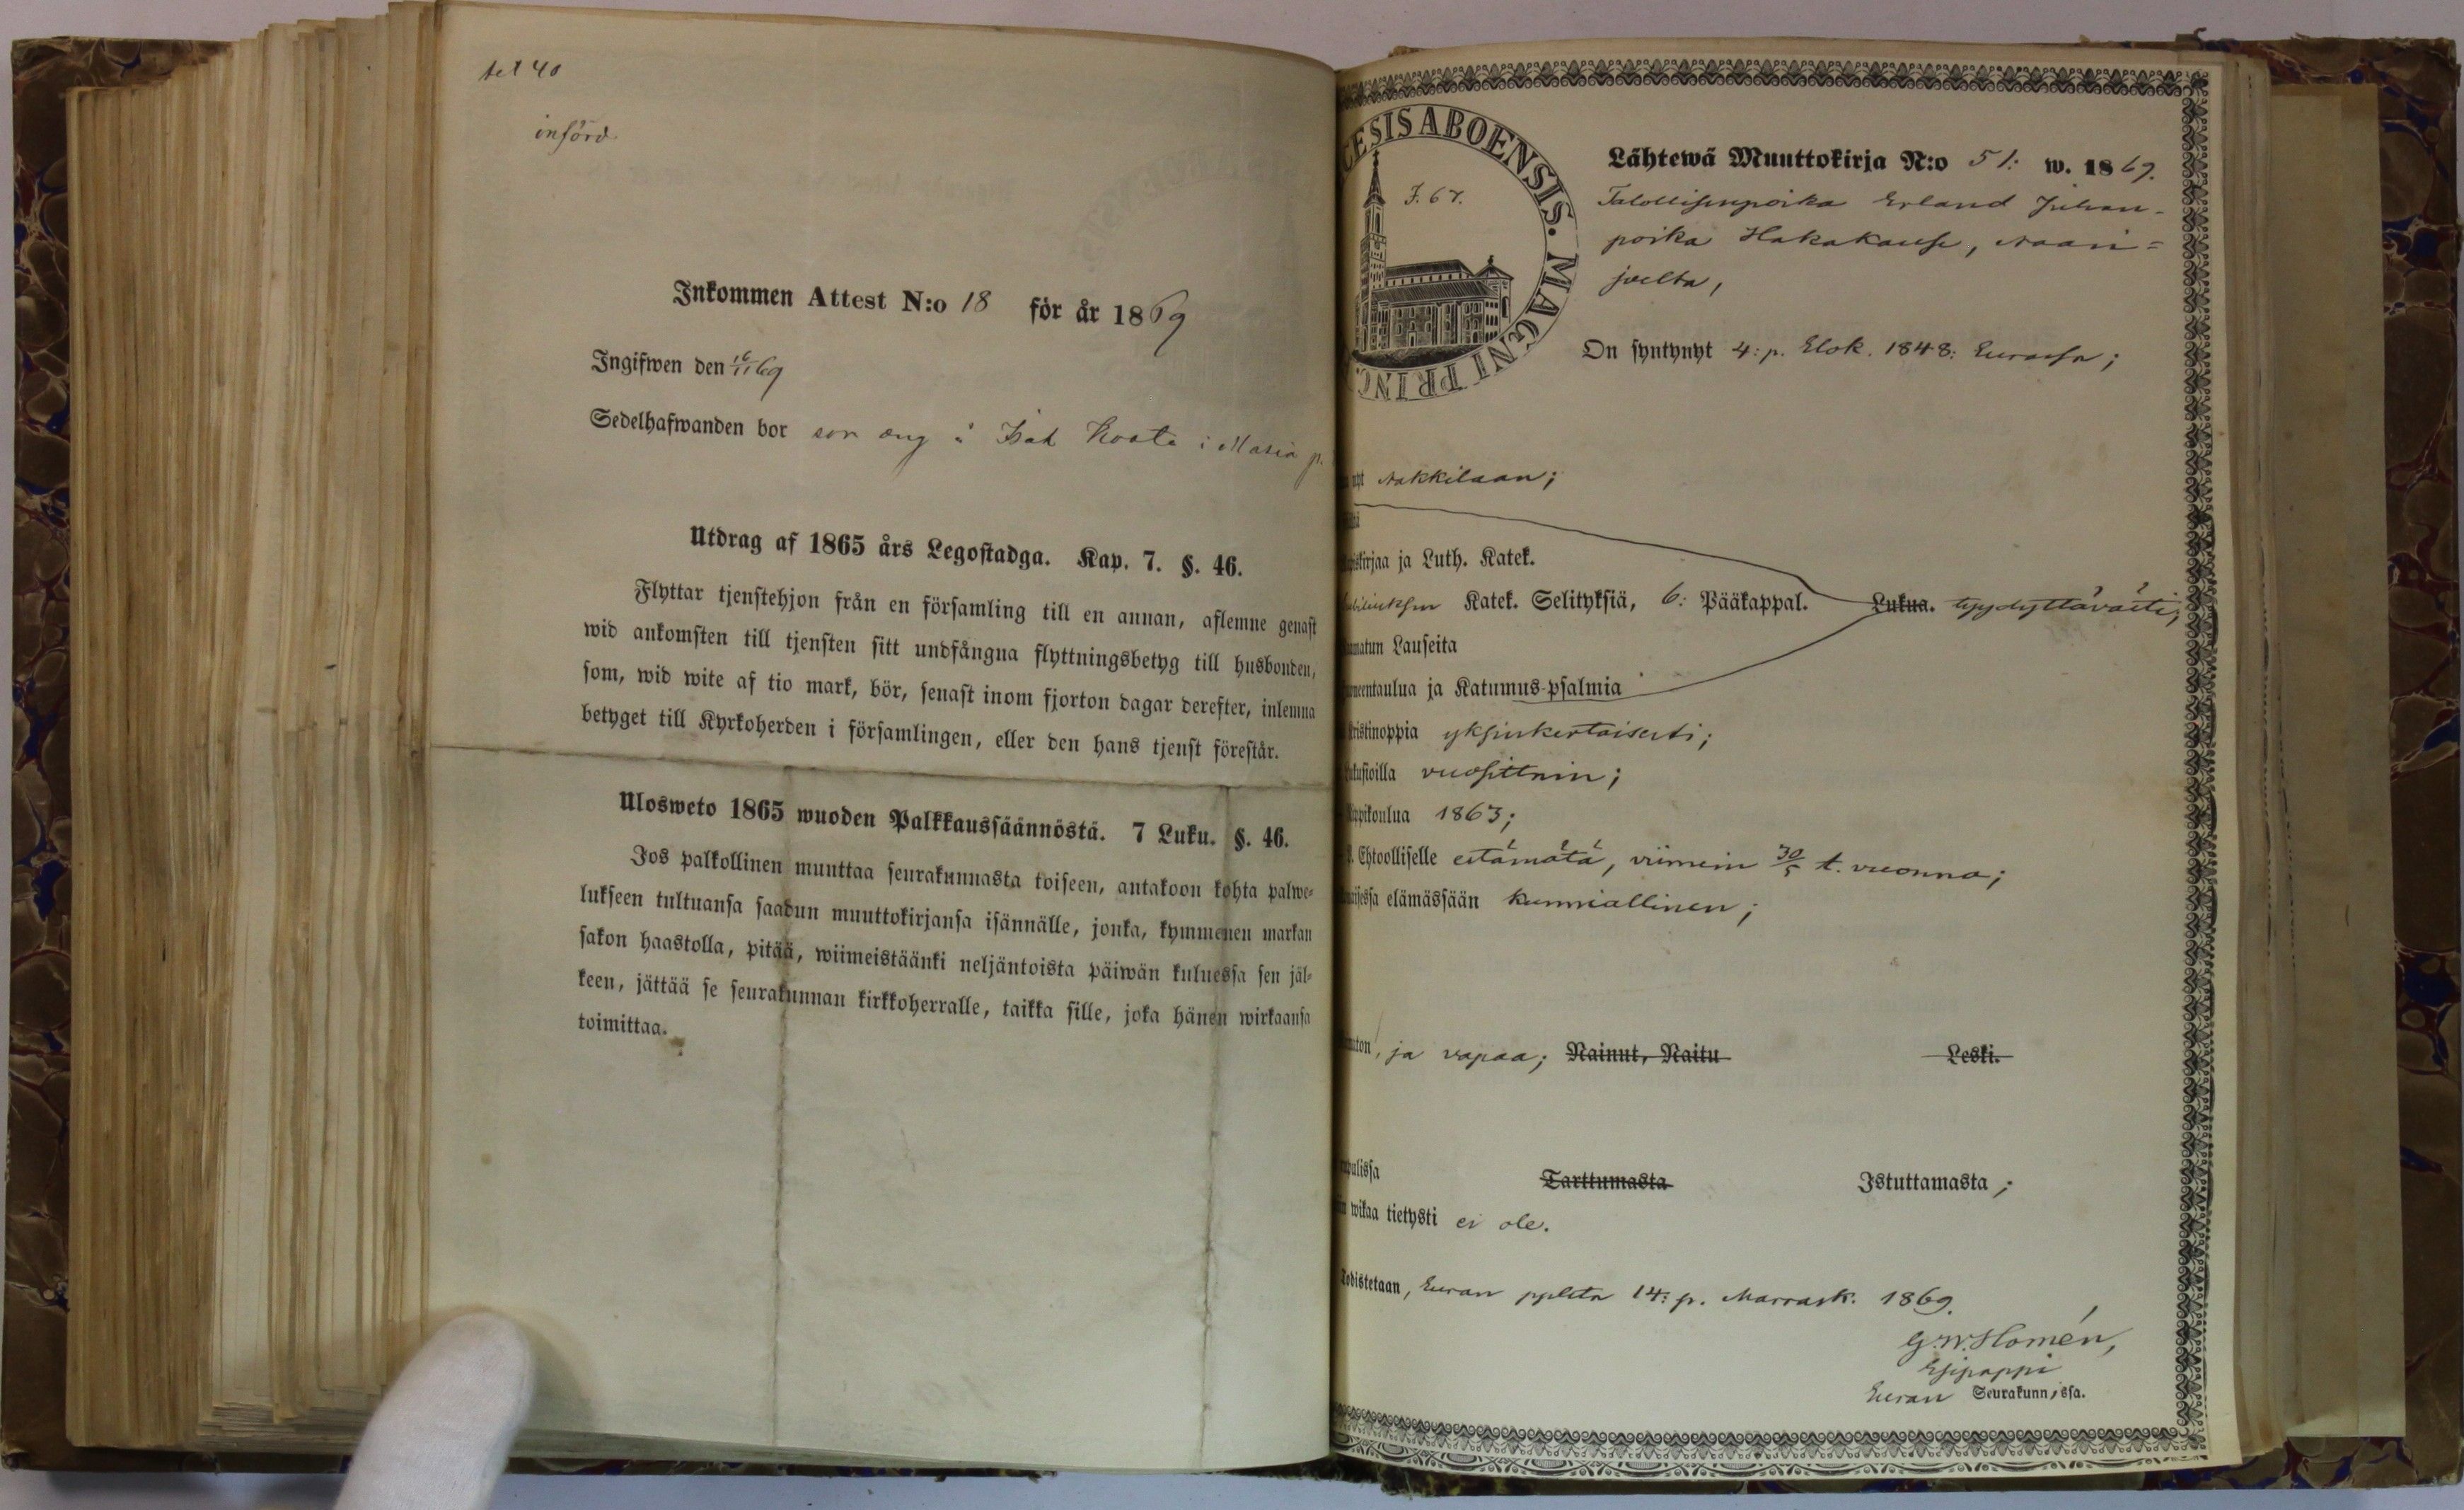 införd
Inkommen Attest N:o 18 för år 1869
Ingifwen den 16/11 69
Sedelhafwanden bor son dng å Isak i Maria p.
Utdrag af 1865 års Legostadga. Kap. 7. §. 46.
Flyttar tjenstehjon från en församling till en annan, aflemne genast
wid ankomsten till tjensten sitt undfångna flyttningsbetyg till husbonden,
som, wid wite af tio mark, bör, senast inom fjorton dagar derefter, inlemna
betyget till Kyrkoherden i församlingen, eller den hans tjenst förestår.
Ulosweto 1865 wuoden Palkkaussäännöstä. 7 Luku. §. 46.
Jos palkollinen muuttaa seurakunnasta toiseen, antakoon kohta palwe-
lukseen tultuansa saadun muuttokirjansa isännälle, jonka, kymmenen markan
sakon haastolla, pitää, wiimeistäänki neljäntoista päiwän kuluessa sen jäl-
keen, jättää se seurakunnan kirkkoherralle, taikka sille, joka hänen wirkaansa
toimittaa.
CESIS ABOENSIS. MAGNI PRINC
F. 67.
Lähtewä Muuttokirja N:o 51: w. 1869.
Talollisenpoika Erland Juhan-
poika Hakakause, Naari-
joelta,
On syntynyt 4: p. Elok. 1848: Eurassa;
nyt Nakkilaan;
kirjaa ja Luth. Katek.
Katek. Selityksiä, 6: Pääkappal. Lukua. tyydyttävästi;
matun Lauseita
neentaulua ja Katumus-psalmia
ristinoppia yksinkertaisesti;
kusioilla vuosittain;
ippikoulua 1863;
Ehtoolliselle estämätä, viimein 30/5 t. vuonna;
elämässään kunniallinen;
ton, ja vapaa; Nainut, Naitu Leski.
pulissa Tarttumasta Istuttamasta;
wikaa tietysti ei ole.
Todistetaan, Euran pplsta 14: p. Marrask. 1869.
G. W. Homén,
Esipappi
Euran Seurakunn,ssa.